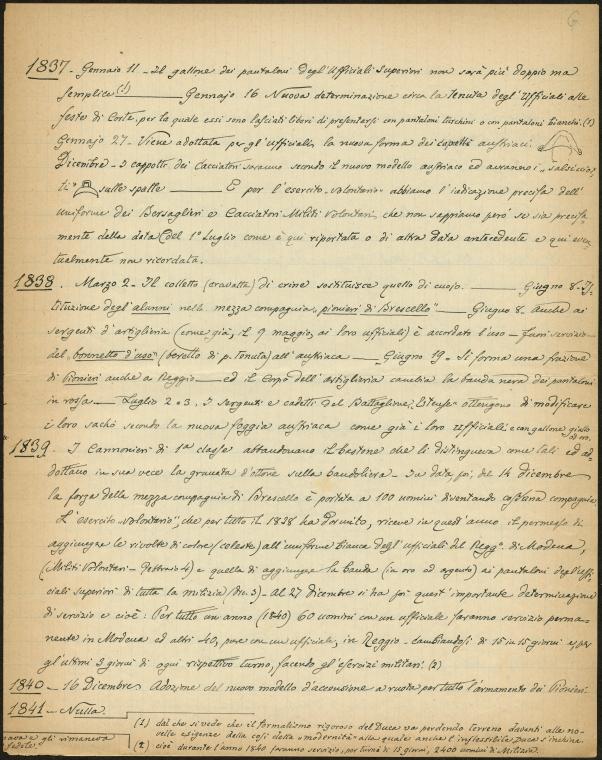 1837 - Gennaio 11 - Il gallone dei pantaloni degl'Ufficiali Superiori non sarà più doppio ma
semplice (!) ——— Gennajo 16 Nuova determinazione circa la tenuta degl'Ufficiali alle
feste di Corte, per la quale essi sono lasciati liberi di presentarsi con pantaloni turchini o con pantaloni bianchi. (1)
Gennajo 27. Viene adottata per gl'ufficiali la nuova forma dei capelli austriaci.
Dicembre - I cappotti dei Cacciatori saranno secondo il nuovo modello austriaco ed avranno i „salsiciot-
ti" sulle spalle ——— E per l'esercito „volontario" abbiamo l'indicazione precisa dell'
uniforme dei Bersaglieri e Cacciatori Militi Volontari, che non sappiamo però se sia precisa-
mente della data del 1º Luglio come è qui riportata o di altra data antecedente e qui even-
tualmente non ricordata.
1838. Marzo 2 - Il colletto (cravatta) di crine sostituisce quello di cuojo. ——— Giugno 8 - Is-
tituzione degl'alunni nella mezza compagnia „pionieri di Brescello" ——— Giugno 8. Anche ai
sergenti d'artiglieria (come già, il 9 maggio, ai loro ufficiali) è accordato l'uso - fuori servizio -
del „bonnetto d'uso" (berretto di p. tenuta) all'austriaca ——— Giugno 19 - Si forma una frazione
di Pionieri anche a Reggio ——— ed il Corpo dell'artiglieria cambia la banda nera dei pantaloni
in rossa ——— Luglio 2 e 3. I sergenti e cadetti del Battaglione „Estense" ottengono di modificare
i loro sachò secondo la nuova foggia austriaca come già i loro ufficiali e con gallone giallo
od oro.
1839. I Cannonieri di 1ª classe abbandonano il bastone che li distingueva come tali ed ad-
dottano in sua vece la granata d'ottone sulla bandoliera - In data poi, del 14 dicembre
la forza della mezza compagnia di Brescello è portata a 100 uomini diventando così una compagnia
L'esercito „volontario", che per tutto il 1838 ha dormito, riceve in quest'anno il permesso di
aggiungere le rivolte di colore (celeste) all'uniforme bianca degl'ufficiali del Regg° di Modena,
(Militi Volontari - Febbraio 4) e quella di aggiungere la banda (in oro ed argento) ai pantaloni degl'uffi-
ciali superiori di tutta la milizia (Div. 3) - Al 27 dicembre si ha poi quest'importante determinazione
di servizio e cioè: Per tutto un anno (1840) 60 uomini con un ufficiale faranno servizio perma-
nente in Modena ed altri 40, pure con un ufficiale, in Reggio - cambiandosi di 15 in 15 giorni e per
gl'ultimi 3 giorni di ogni rispettivo turno, facendo gl'esercizi militari. (2)
1840 - 16 Dicembre Adozione del nuovo modello d'accensione a ruota, per tutto l'armamento dei Pionieri.
1841 - Nulla.
(1) dal che si vede che il formalismo rigoroso del Duca va perdendo terreno davanti alle no-
velle esigenze della così detta "modernità" alla quale anche l'inflessibile Duca s'inchina.
(2) cioè durante l'anno 1840 faranno servizio, per turni di 15 giorni, 2400 uomini di Milizia.
e gli rimaneva
fedele.